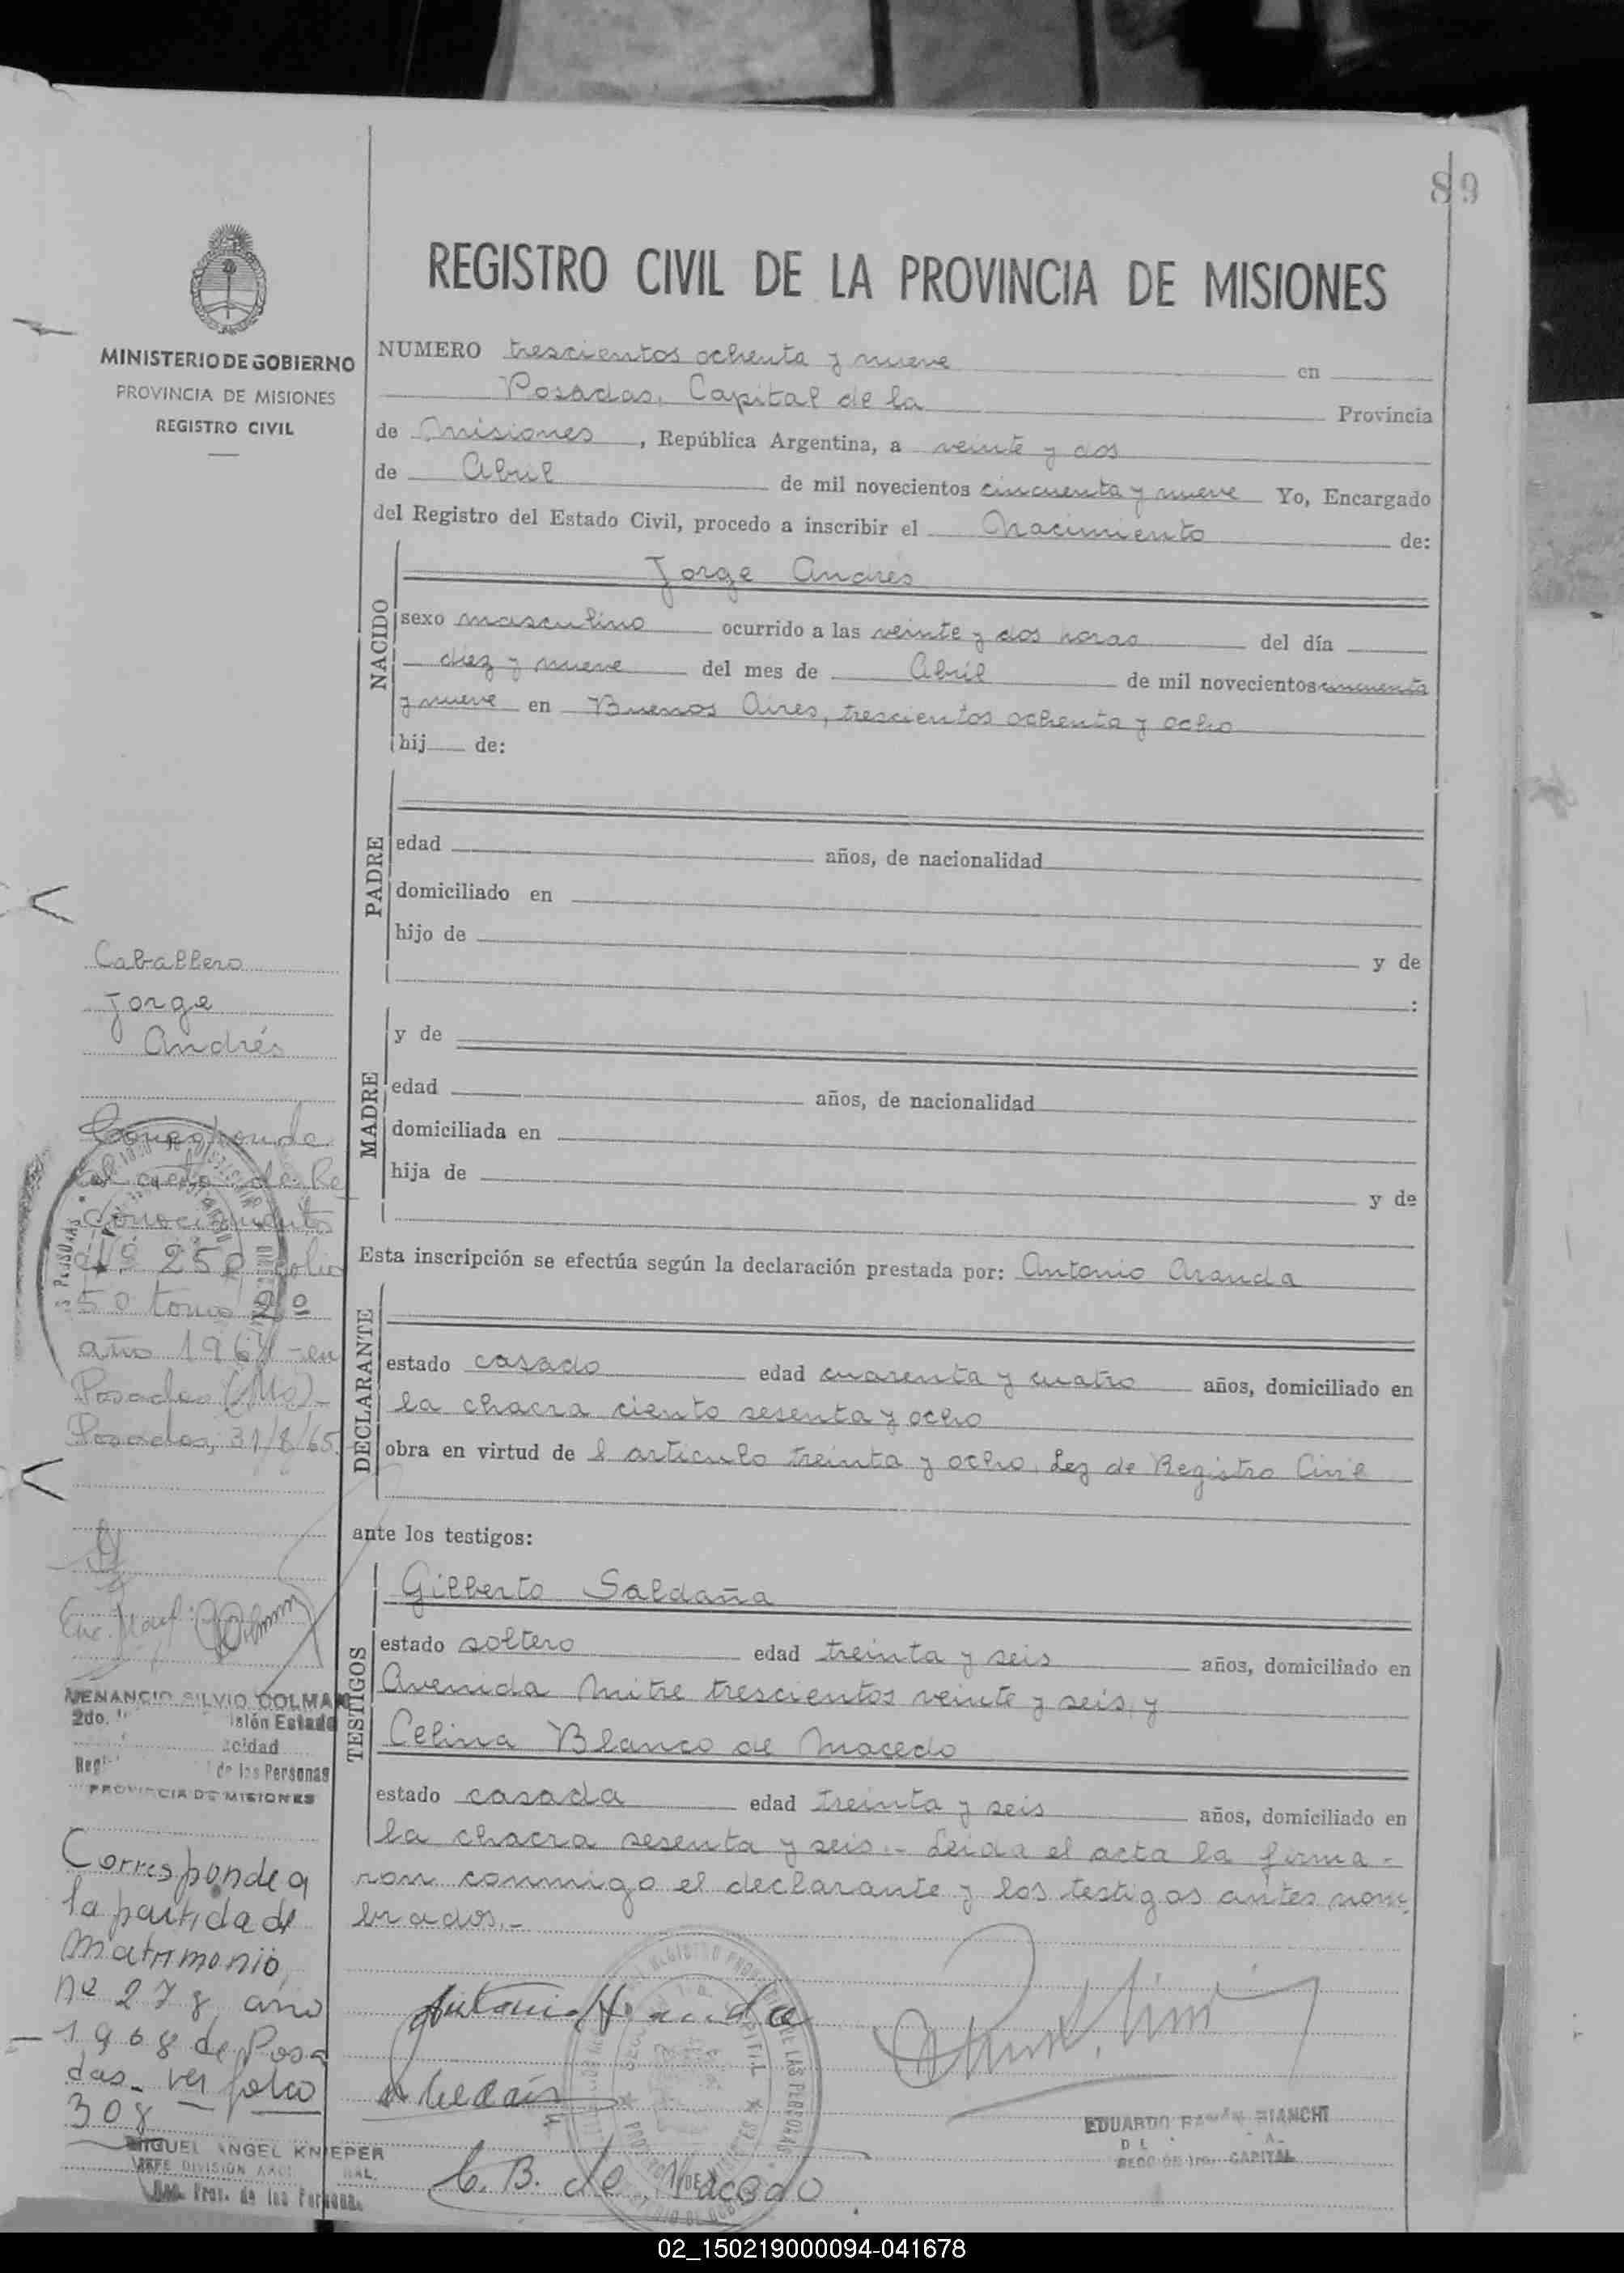 89
REGISTRO CIVIL DE LA PROVINCIA DE MISIONES
MINISTERIO DE GOBIERNO
PROVINCIA DE MISIONES
REGISTRO CIVIL
NUMERO trescientos ochenta y nueve en
Posadas, Capital de la Provincia
de Misiones, República Argentina, a veinte y dos
de Abril de mil novecientos cincuenta y nueve Yo, Encargado
del Registro del Estado Civil, procedo a inscribir el Nacimiento de:
NACIDO
Jorge Andres
sexo masculino ocurrido a las veinte y dos horas del día
diez y nueve del mes de Abril de mil novecientos cincuenta
y nueve en Buenos Aires, trescientos ochenta y ocho
hij de:
PADRE
edad años, de nacionalidad
domiciliado en
hijo de y de
:
MADRE
y de
edad años, de nacionalidad
domiciliada en
hija de y de
Esta inscripción se efectúa según la declaración prestada por: Antonio Aranda
DECLARANTE
estado casado edad cuarenta y cuatro años, domiciliado en
la chacra ciento sesenta y ocho
obra en virtud de l articulo treinta y ocho, Ley de Registro Civil
ante los testigos:
TESTIGOS
Gilberto Saldaña
estado soltero edad treinta y seis años, domiciliado en
Avenida Mitre trescientos veinte y seis, y
Celina Blanco de Macedo
estado casada edad treinta y seis años, domiciliado en
la chacra sesenta y seis.- Leida el acta la firma-
ron conmigo el declarante y los testigos antes nom-
brados.-
Antonio Aranda
C. B. de Macedo
EDUARDO RAMÓN BIANCHI
CAPITAL
Caballero
Jorge
Andrés
Corresponde
al acta de Re
conocimiento
Nº 250 folio
50 tomo 2º
año 1964 en
Posadas (Ms)-
Posadas, 31/8/65.
VENANCIO SILVIO COLMAN
2do. isión Estado
acidad
de las Personas
PROVINCIA DE MISIONES
Corresponde a
la partida de
matrimonio,
nº 278 año
1968 de Posa
das- ver folio
308
MIGUEL ANGEL KNIEPER
JEFE DIVISION
Reg. Prov. de las Personas.
02_150219000094-041678